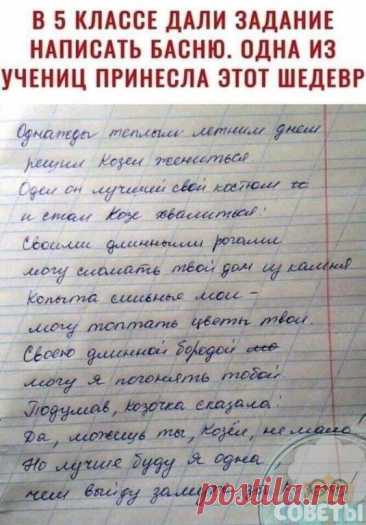 В 5 КЛАССЕ ДАЛИ ЗАДАНИЕ
НАПИСАТЬ БАСНЮ. ОДНА ИЗ
УЧЕНИЦ ПРИНЕСЛА ЭТОТ ШЕДЕВР
Однажды теплым летним днем
решил Козел жениться
Одел он лучший свой костюм
и стал Козе хвалиться:
Своими длинными рогами
могу сломать твой дом из камня
Копыта сильные мои -
могу топтать цветы твои.
Своею длинной бородой
могу я погонять тобой
Подумав, козочка сказала:
Да, можешь ты, Козёл, немало!
Но лучше буду я одна,
чем выйду замуж за
СОВЕТЫ
postila.ru